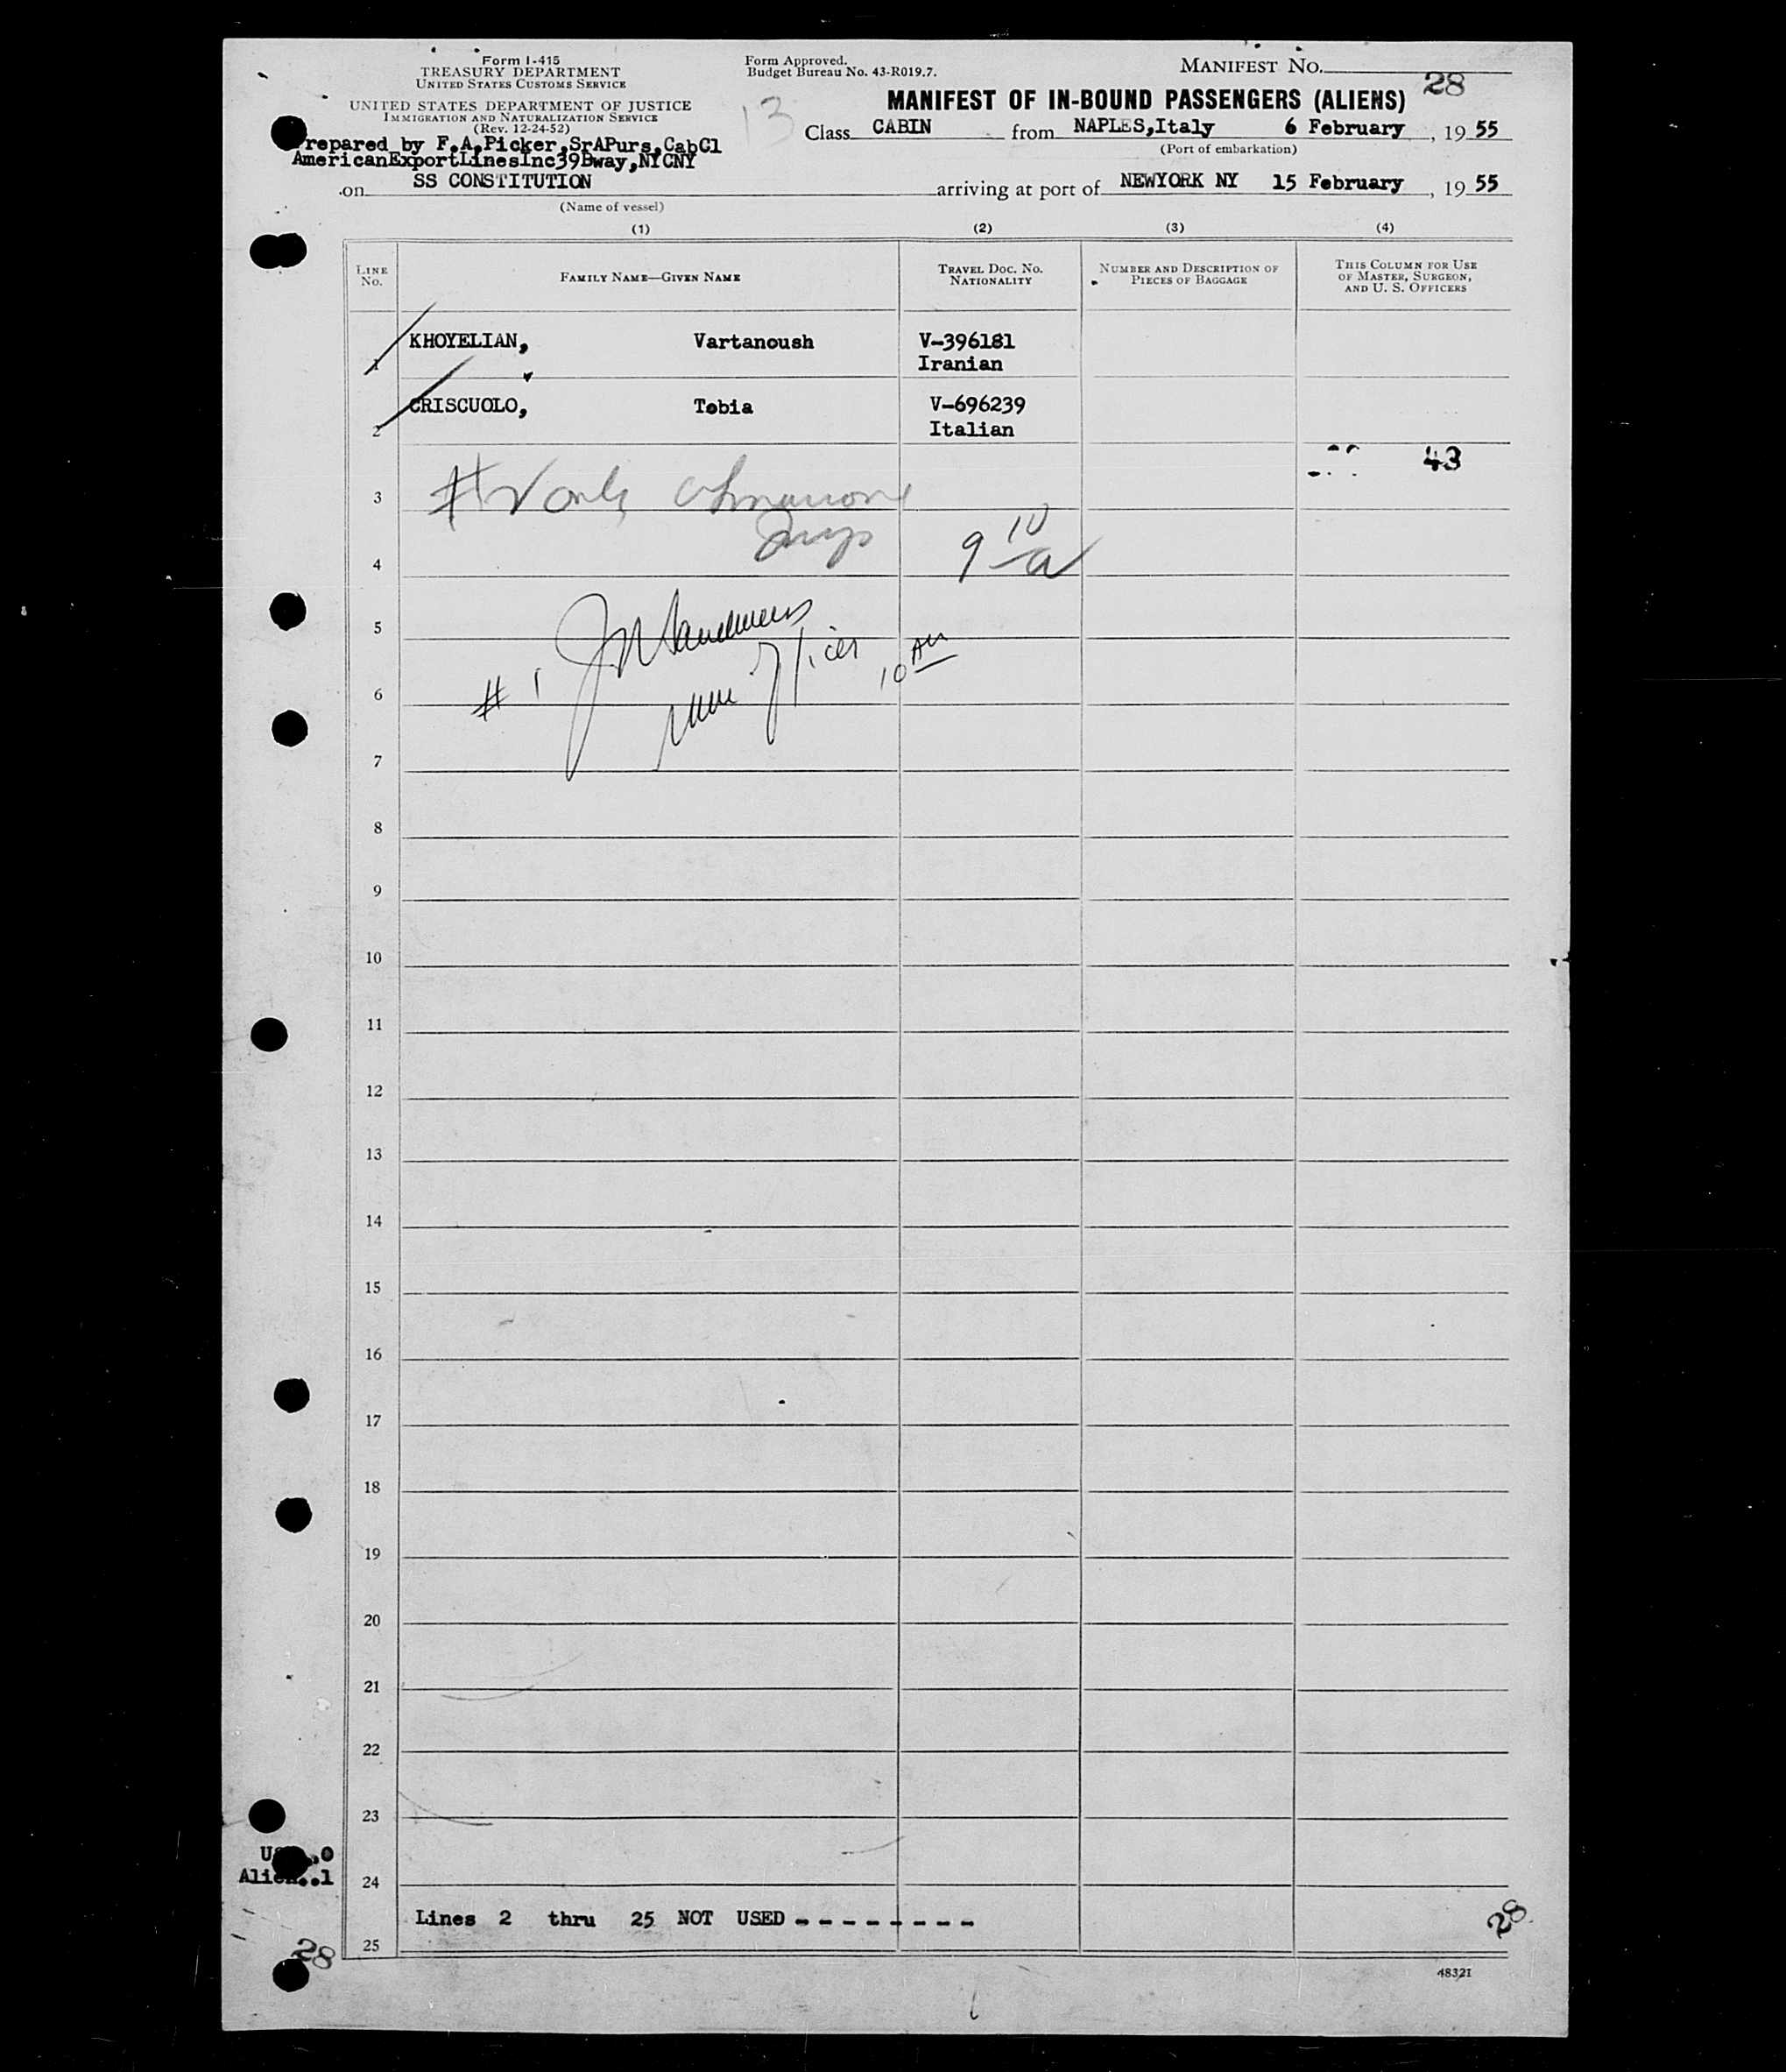 Form I-415
TREASURY DEPARTMENT
UNITED STATES CUSTOMS SERVICE
UNITED STATES DEPARTMENT OF JUSTICE
IMMIGRATION AND NATURALIZATION SERVICE
(Rev. 12-24-52)
Prepared by F.A.Picker,SrAPurs,CabCl
AmericanExportLinesInc39Bway,NYCNY
Form Approved.
Budget Bureau No. 43-R019.7.
13
MANIFEST NO.
28
MANIFEST OF IN-BOUND PASSENGERS (ALIENS)
Class CABIN from NAPLES,Italy 6 February , 19 55
(Port of embarkation)
on SS CONSTITUTION arriving at port of NEWYORK NY 15 February , 19 55
(Name of vessel)
(1) (2) (3) (4)
LINE NO. FAMILY NAME—GIVEN NAME TRAVEL DOC. NO. NATIONALITY NUMBER AND DESCRIPTION OF PIECES OF BAGGAGE THIS COLUMN FOR USE OF MASTER, SURGEON, AND U. S. OFFICERS
1 KHOYELIAN, Vartanoush V-396181
Iranian
2 CRISCUOLO, Tobia V-696239
Italian
43
3 #
4 9 10 a
5
# 1 10 AM
6
7
8
9
10
11
12
13
14
15
16
17
18
19
20
21
22
23
24
Alien..1
Lines 2 thru 25 NOT USED - - - - - - - -
25
28
28
48321